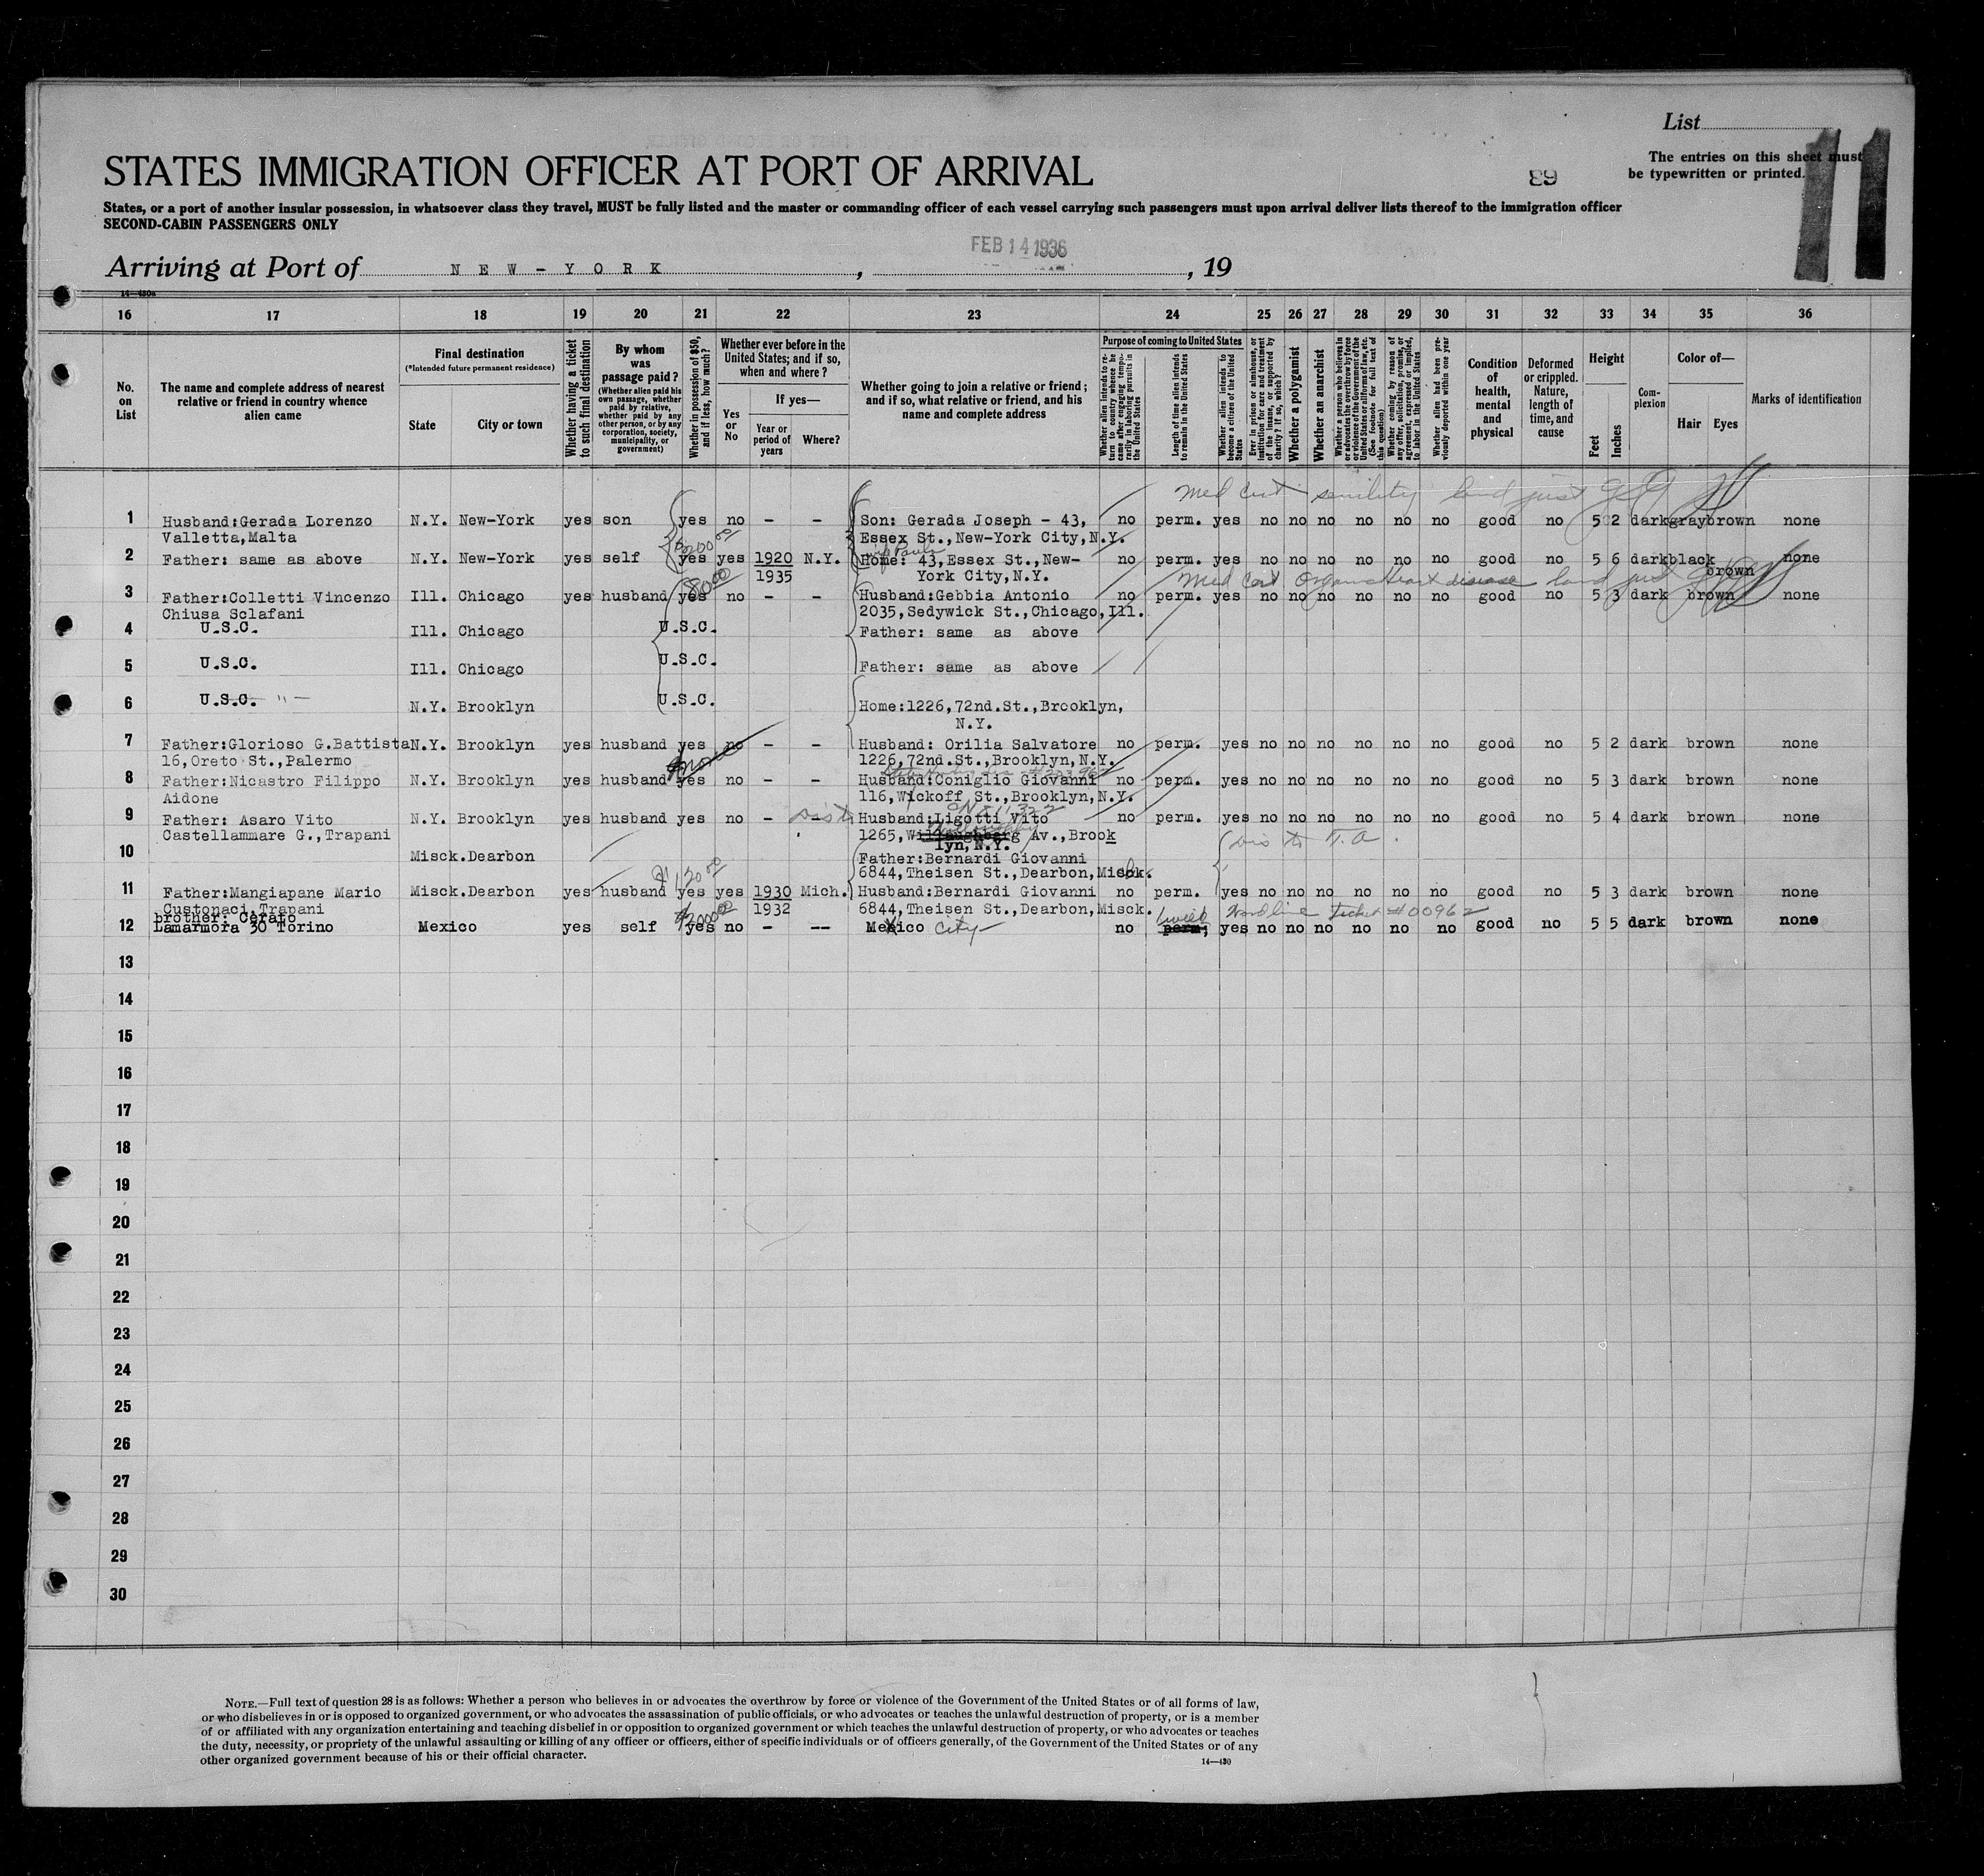 List
The entries on this sheet must
be typewritten or printed.
11
89
STATES IMMIGRATION OFFICER AT PORT OF ARRIVAL
States, or a port of another insular possession, in whatsoever class they travel, MUST be fully listed and the master or commanding officer of each vessel carrying such passengers must upon arrival deliver lists thereof to the immigration officer
SECOND-CABIN PASSENGERS ONLY
Arriving at Port of NEW-YORK, FEB 14 1936, 19
14—430a
16 17 18 19 20 21 22 23 24 25 26 27 28 29 30 31 32 33 34 35 36
No. on List
The name and complete address of nearest relative or friend in country whence alien came
Final destination
(*Intended future permanent residence)
State
City or town
Whether having a ticket to such final destination
By whom was passage paid?
(Whether alien paid his own passage, whether paid by relative, whether paid by any other person, or by any corporation, society, municipality, or government)
Whether in possession of $50, and if less, how much?
Whether ever before in the United States; and if so, when and where?
Yes or No
If yes—
Year or period of years
Where?
Whether going to join a relative or friend; and if so, what relative or friend, and his name and complete address
Purpose of coming to United States
Whether alien intends to return to country whence he came after engaging temporarily in laboring pursuits in the United States
Length of time alien intends to remain in the United States
Whether alien intends to become a citizen of the United States
Ever in prison or almshouse, or institution for care and treatment of the insane, or supported by charity? If so, which?
Whether a polygamist
Whether an anarchist
Whether a person who believes in or advocates the overthrow by force or violence of the Government of the United States or all forms of law, etc. (See footnote for full text of this question)
Whether coming by reason of any offer, solicitation, promise, or agreement, expressed or implied, to labor in the United States
Whether alien had been previously deported within one year
Condition of health, mental and physical
Deformed or crippled. Nature, length of time, and cause
Height
Feet
Inches
Complexion
Color of—
Hair Eyes
Marks of identification
Med Cert senility land just
1 Husband:Gerada Lorenzo N.Y. New-York yes son yes no - - Son: Gerada Joseph - 43, no perm. yes no no no no no no good no 5 2 dark gray brown none
Valletta,Malta Essex St.,New-York City,N.Y.
$200.00
2 Father: same as above N.Y. New-York yes self yes yes 1920 N.Y. Home: 43,Essex St.,New- no perm. yes no no no no no no good no 5 6 dark black none
1935 York City,N.Y. brown
Med Cert Organic Heart disease land just
3 Father:Colletti Vincenzo Ill. Chicago yes husband yes no - - Husband:Gebbia Antonio no perm. yes no no no no no no good no 5 3 dark brown none
Chiusa Sclafani 2035,Sedywick St.,Chicago,Ill.
4 U.S.C. Ill. Chicago U.S.C. Father: same as above
5 U.S.C. Ill. Chicago U.S.C. Father: same as above
6 U.S.C. " — N.Y. Brooklyn U.S.C. Home:1226,72nd.St.,Brooklyn,
N.Y.
7 Father:Glorioso G.Battista N.Y. Brooklyn yes husband yes no - - Husband: Orilia Salvatore no perm. yes no no no no no no good no 5 2 dark brown none
16,Oreto St.,Palermo 1226,72nd.St.,Brooklyn,N.Y.
8 Father:Nicastro Filippo N.Y. Brooklyn yes husband yes no - - Husband:Coniglio Giovanni no perm. yes no no no no no no good no 5 3 dark brown none
Aidone 116,Wickoff St.,Brooklyn,N.Y.
9 Father: Asaro Vito N.Y. Brooklyn yes husband yes no - - Husband:Ligotti Vito no perm. yes no no no no no no good no 5 4 dark brown none
Castellammare G.,Trapani 1265, Av.,Brook
lyn,N.Y.
10 Misck.Dearbon Father:Bernardi Giovanni
6844,Theisen St.,Dearbon,Misck.
$120.00
11 Father:Mangiapane Mario Misck.Dearbon yes husband yes yes 1930 Mich. Husband:Bernardi Giovanni no perm. yes no no no no no no good no 5 3 dark brown none
Custonaci,Trapani 1932 6844,Theisen St.,Dearbon,Misck.
brother: Cerato $200.00 1 week Wardline Ticket #00962
12 Lamarmora 30 Torino Mexico yes self yes no - -- Mexico City no perm; yes no no no no no no good no 5 5 dark brown none
13
14
15
16
17
18
19
20
21
22
23
24
25
26
27
28
29
30
NOTE.—Full text of question 28 is as follows: Whether a person who believes in or advocates the overthrow by force or violence of the Government of the United States or of all forms of law,
or who disbelieves in or is opposed to organized government, or who advocates the assassination of public officials, or who advocates or teaches the unlawful destruction of property, or is a member
of or affiliated with any organization entertaining and teaching disbelief in or opposition to organized government or which teaches the unlawful destruction of property, or who advocates or teaches
the duty, necessity, or propriety of the unlawful assaulting or killing of any officer or officers, either of specific individuals or of officers generally, of the Government of the United States or of any
other organized government because of his or their official character.
14—430